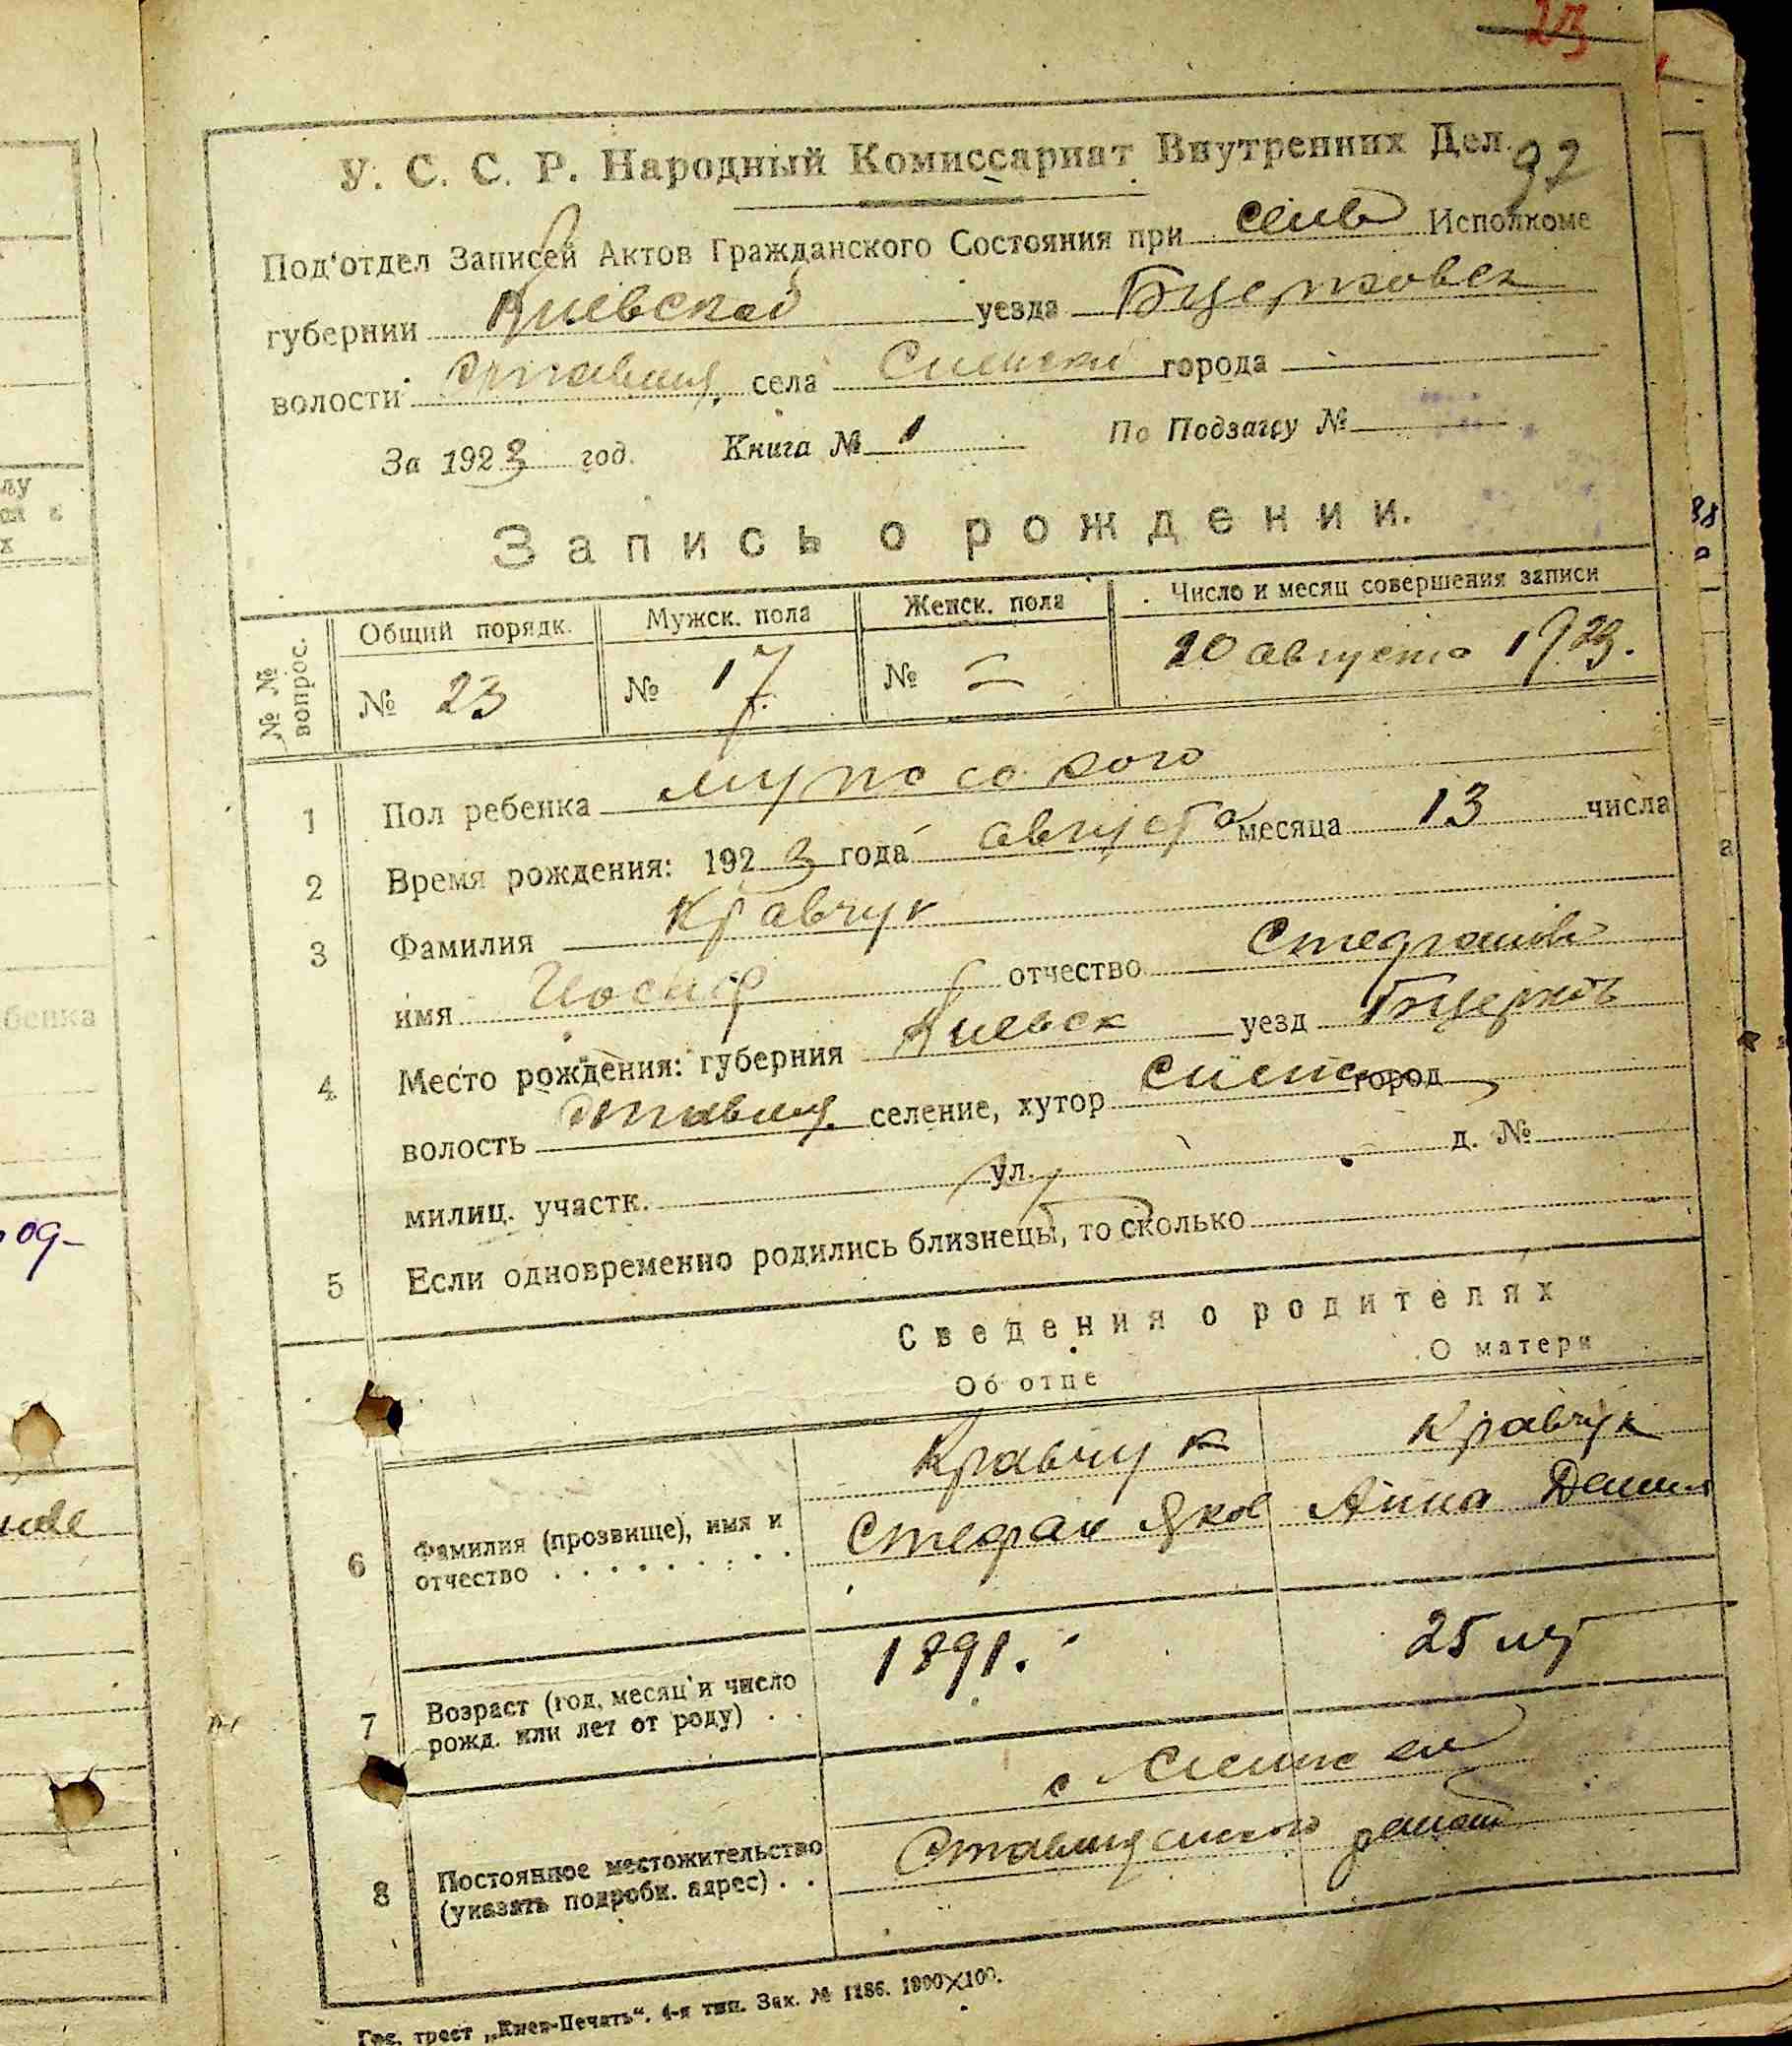 23
92
У. С. С. Р. Народный Комиссариат Внутренних Дел.
Под'отдел Записей Актов Гражданского Состояния при сельв Исполкоме
губернии Киевской уезда Бцерковск
волости села города
За 1923 год. Книга № 1 По Подзагсу №
Запись о рождении.
№ № вопрос. Общий порядк. Мужск. пола Женск. пола Число и месяц совершения записи
№ 23 № 17 № — 20 августа 1923.
1 Пол ребенка мужского
2 Время рождения: 1923 года августа месяца 13 числа
3 Фамилия Кравчук
имя Иосиф отчество Стефанов
4 Место рождения: губерния Киевск уезд Бцерков
волость Ставищ. селение, хутор город
милиц. участк. ул. д. №
5 Если одновременно родились близнецы, то сколько
Сведения о родителях
Об отце О матери
Кравчук Кравчук
6 Фамилия (прозвище), имя и отчество Стефан Яков Анна Данил
7 Возраст (год, месяц и число рожд. или лет от роду) 1891. 25 лет
8 Постоянное местожительство (указать подробн. адрес) с
Ставищенского району
Гос. трест „Киев-Печать". 4-я тип. Зак. № 1186. 1900×100.